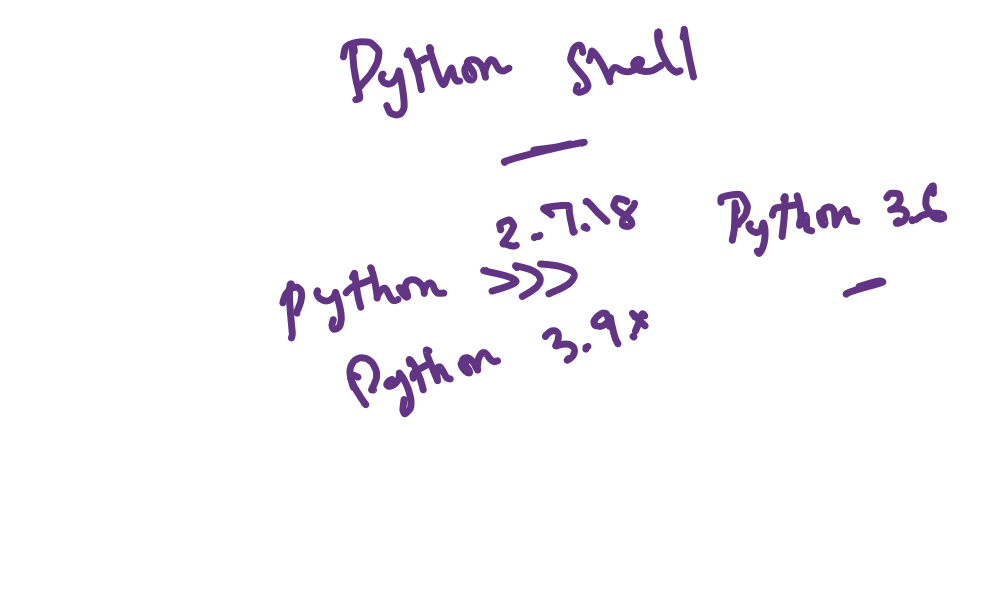 Python Shell
2.7.18
Python 3.6
python >>>
Python 3.9x